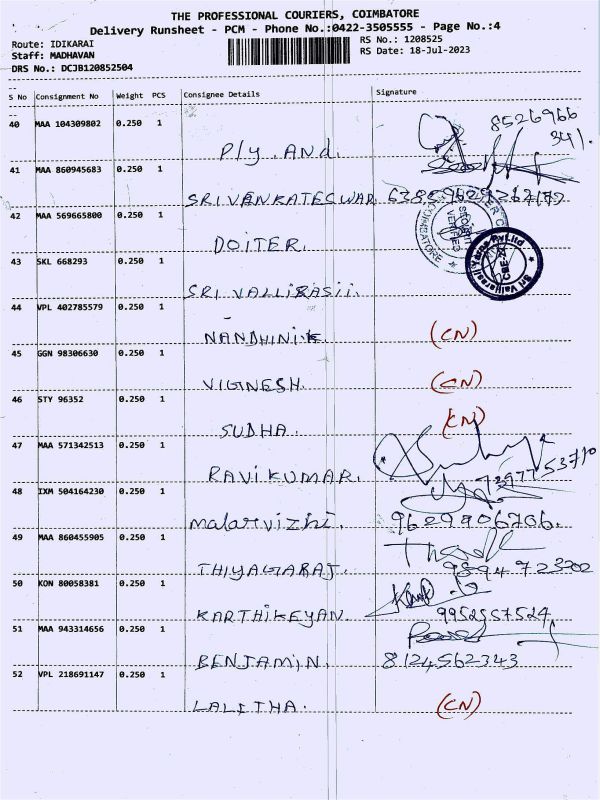 THE PROFESSIONAL COURIERS, COIMBATORE
Delivery Runsheet - PCM - Phone No.:0422-3505555 - Page No.:4
Route: IDIKARAI
RS No.: 1208525
Staff: MADHAVAN
RS Date: 18-Jul-2023
DRS No.: DCJB120852504
S No Consignment No Weight PCS Consignee Details Signature
40 MAA 104309802 0.250 1
8526966
341.
P/y. And.
41 MAA 860945683 0.250 1
SRI VENKATESWAR
42 MAA 569665800 0.250 1
COIMBATORE
SECURITY
VERIFIED
DOITER.
43 SKL 668293 0.250 1
Sri Vallirasii Yarns Pvt Ltd
CBE-24
SRI VALLIRASII.
44 VPL 402785579 0.250 1
NANDHINI.K. (CN)
45 GGN 98306630 0.250 1
VIGNESH. (CN)
46 STY 96352 0.250 1
SUDHA. (CN)
47 MAA 571342513 0.250 1
RAVIKUMAR.
48 IXM 504164230 0.250 1
malarvizhi. 9629906706.
49 MAA 860455905 0.250 1
THIYAGARAJ. 9894723202
50 KON 80058381 0.250 1
KARTHIKEYAN. 9952557524
51 MAA 943314656 0.250 1
BENJAMIN. 8124562343
52 VPL 218691147 0.250 1
LALITHA. (CN)